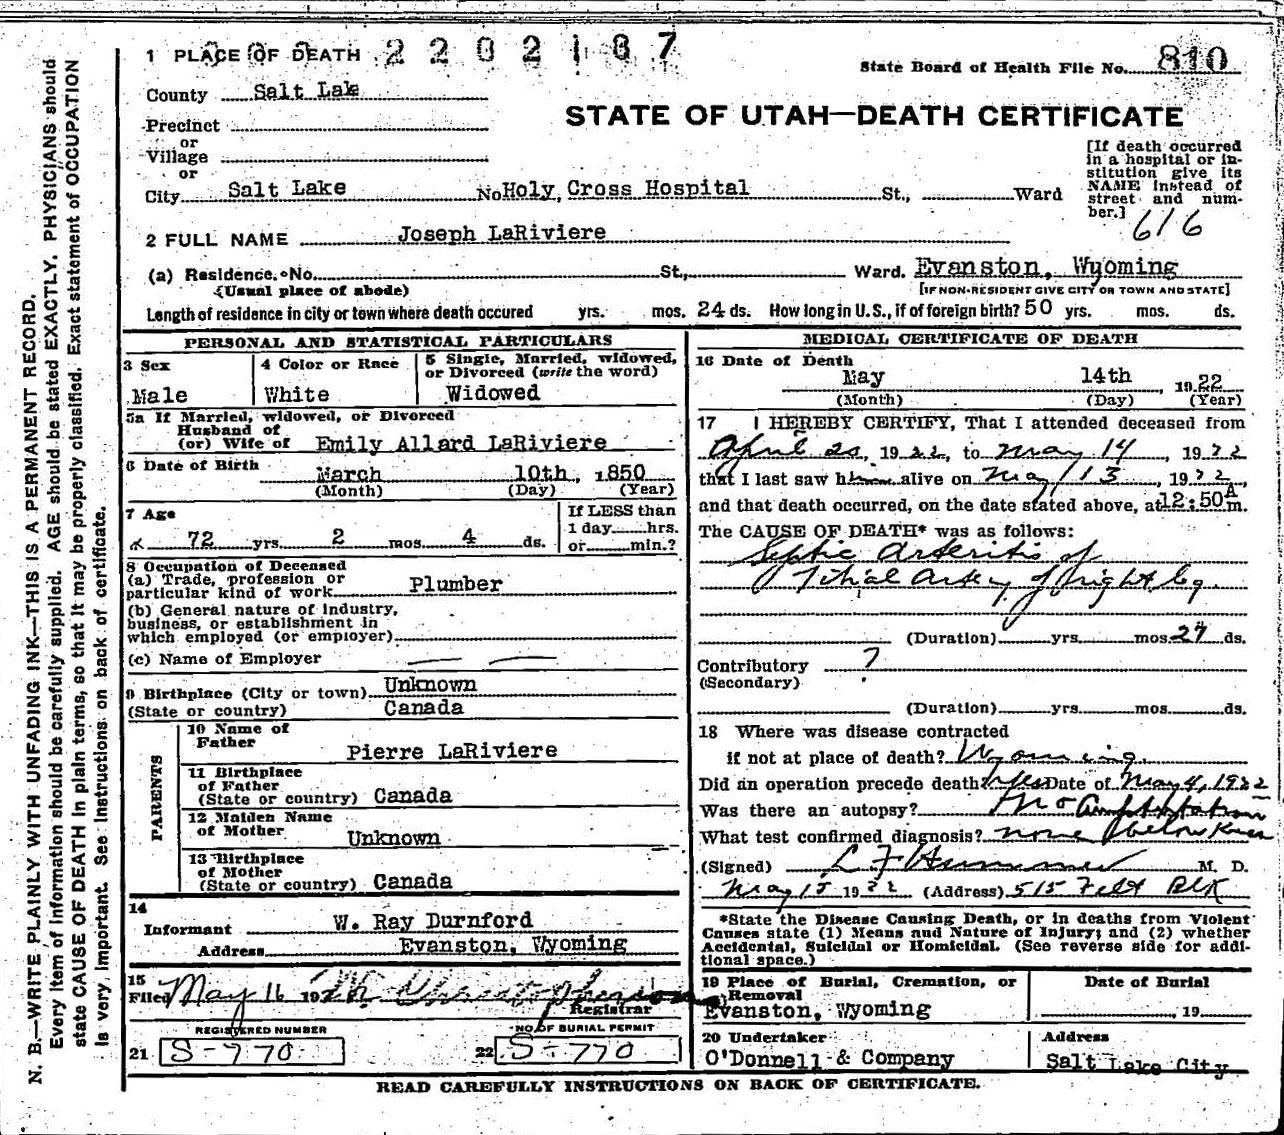 1 PLACE OF DEATH 2202187
State Board of Health File No. 810
County Salt Lake
STATE OF UTAH—DEATH CERTIFICATE
Precinct
or
Village
or
City Salt Lake No Holy Cross Hospital St., Ward
[If death occurred
in a hospital or in-
stitution give its
NAME instead of
street and num-
ber.]
616
2 FULL NAME Joseph LaRiviere
(a) Residence. No. St., Ward. Evanston, Wyoming
(Usual place of abode) [IF NON-RESIDENT GIVE CITY OR TOWN AND STATE]
Length of residence in city or town where death occured yrs. mos. 24 ds. How long in U.S., if of foreign birth? 50 yrs. mos. ds.
PERSONAL AND STATISTICAL PARTICULARS
3 Sex
Male
4 Color or Race
White
5 Single, Married, widowed,
or Divorced (write the word)
Widowed
5a If Married, widowed, or Divorced
Husband of
(or) Wife of Emily Allard LaRiviere
6 Date of Birth
March 10th, 1850
(Month) (Day) (Year)
7 Age
72 yrs. 2 mos. 4 ds.
If LESS than
1 day hrs.
or min.?
8 Occupation of Deceased
(a) Trade, profession or
particular kind of work Plumber
(b) General nature of industry,
business, or establishment in
which employed (or employer)
(c) Name of Employer
9 Birthplace (City or town) Unknown
(State or country) Canada
PARENTS
10 Name of
Father
Pierre LaRiviere
11 Birthplace
of Father
(State or country) Canada
12 Maiden Name
of Mother
Unknown
13 Birthplace
of Mother
(State or country) Canada
14
Informant W. Ray Durnford
Address Evanston, Wyoming
15
Filed May 16 192
Registrar
REGISTERED NUMBER NO. OF BURIAL PERMIT
21 S-770 22 S-770
MEDICAL CERTIFICATE OF DEATH
16 Date of Death
May 14th 1922
(Month) (Day) (Year)
17 I HEREBY CERTIFY, That I attended deceased from
April 20, 1922, to May 14, 1922
that I last saw him alive on May 13, 1922,
and that death occurred, on the date stated above, at 12:50 A m.
The CAUSE OF DEATH* was as follows:
Septic Arteritis of
Tibial Artery of right leg
(Duration) yrs. mos. 27 ds.
Contributory ?
(Secondary)
(Duration) yrs. mos. ds.
18 Where was disease contracted
if not at place of death? Wyoming.
Did an operation precede death? Yes Date of May 4, 1922
Was there an autopsy? no Amputation
What test confirmed diagnosis? none below knee
(Signed) L F Hummer M. D.
May 15 1922 (Address) 515 Felt Blk
*State the Disease Causing Death, or in deaths from Violent
Causes state (1) Means and Nature of Injury; and (2) whether
Accidental, Suicidal or Homicidal. (See reverse side for addi-
tional space.)
19 Place of Burial, Cremation, or
Removal
Evanston, Wyoming
Date of Burial
, 19
20 Undertaker
O'Donnell & Company
Address
Salt Lake City
READ CAREFULLY INSTRUCTIONS ON BACK OF CERTIFICATE.
N. B.—WRITE PLAINLY WITH UNFADING INK—THIS IS A PERMANENT RECORD.
Every item of information should be carefully supplied. AGE should be stated EXACTLY. PHYSICIANS should
state CAUSE OF DEATH in plain terms, so that it may be properly classified. Exact statement of OCCUPATION
is very important. See instructions on back of certificate.